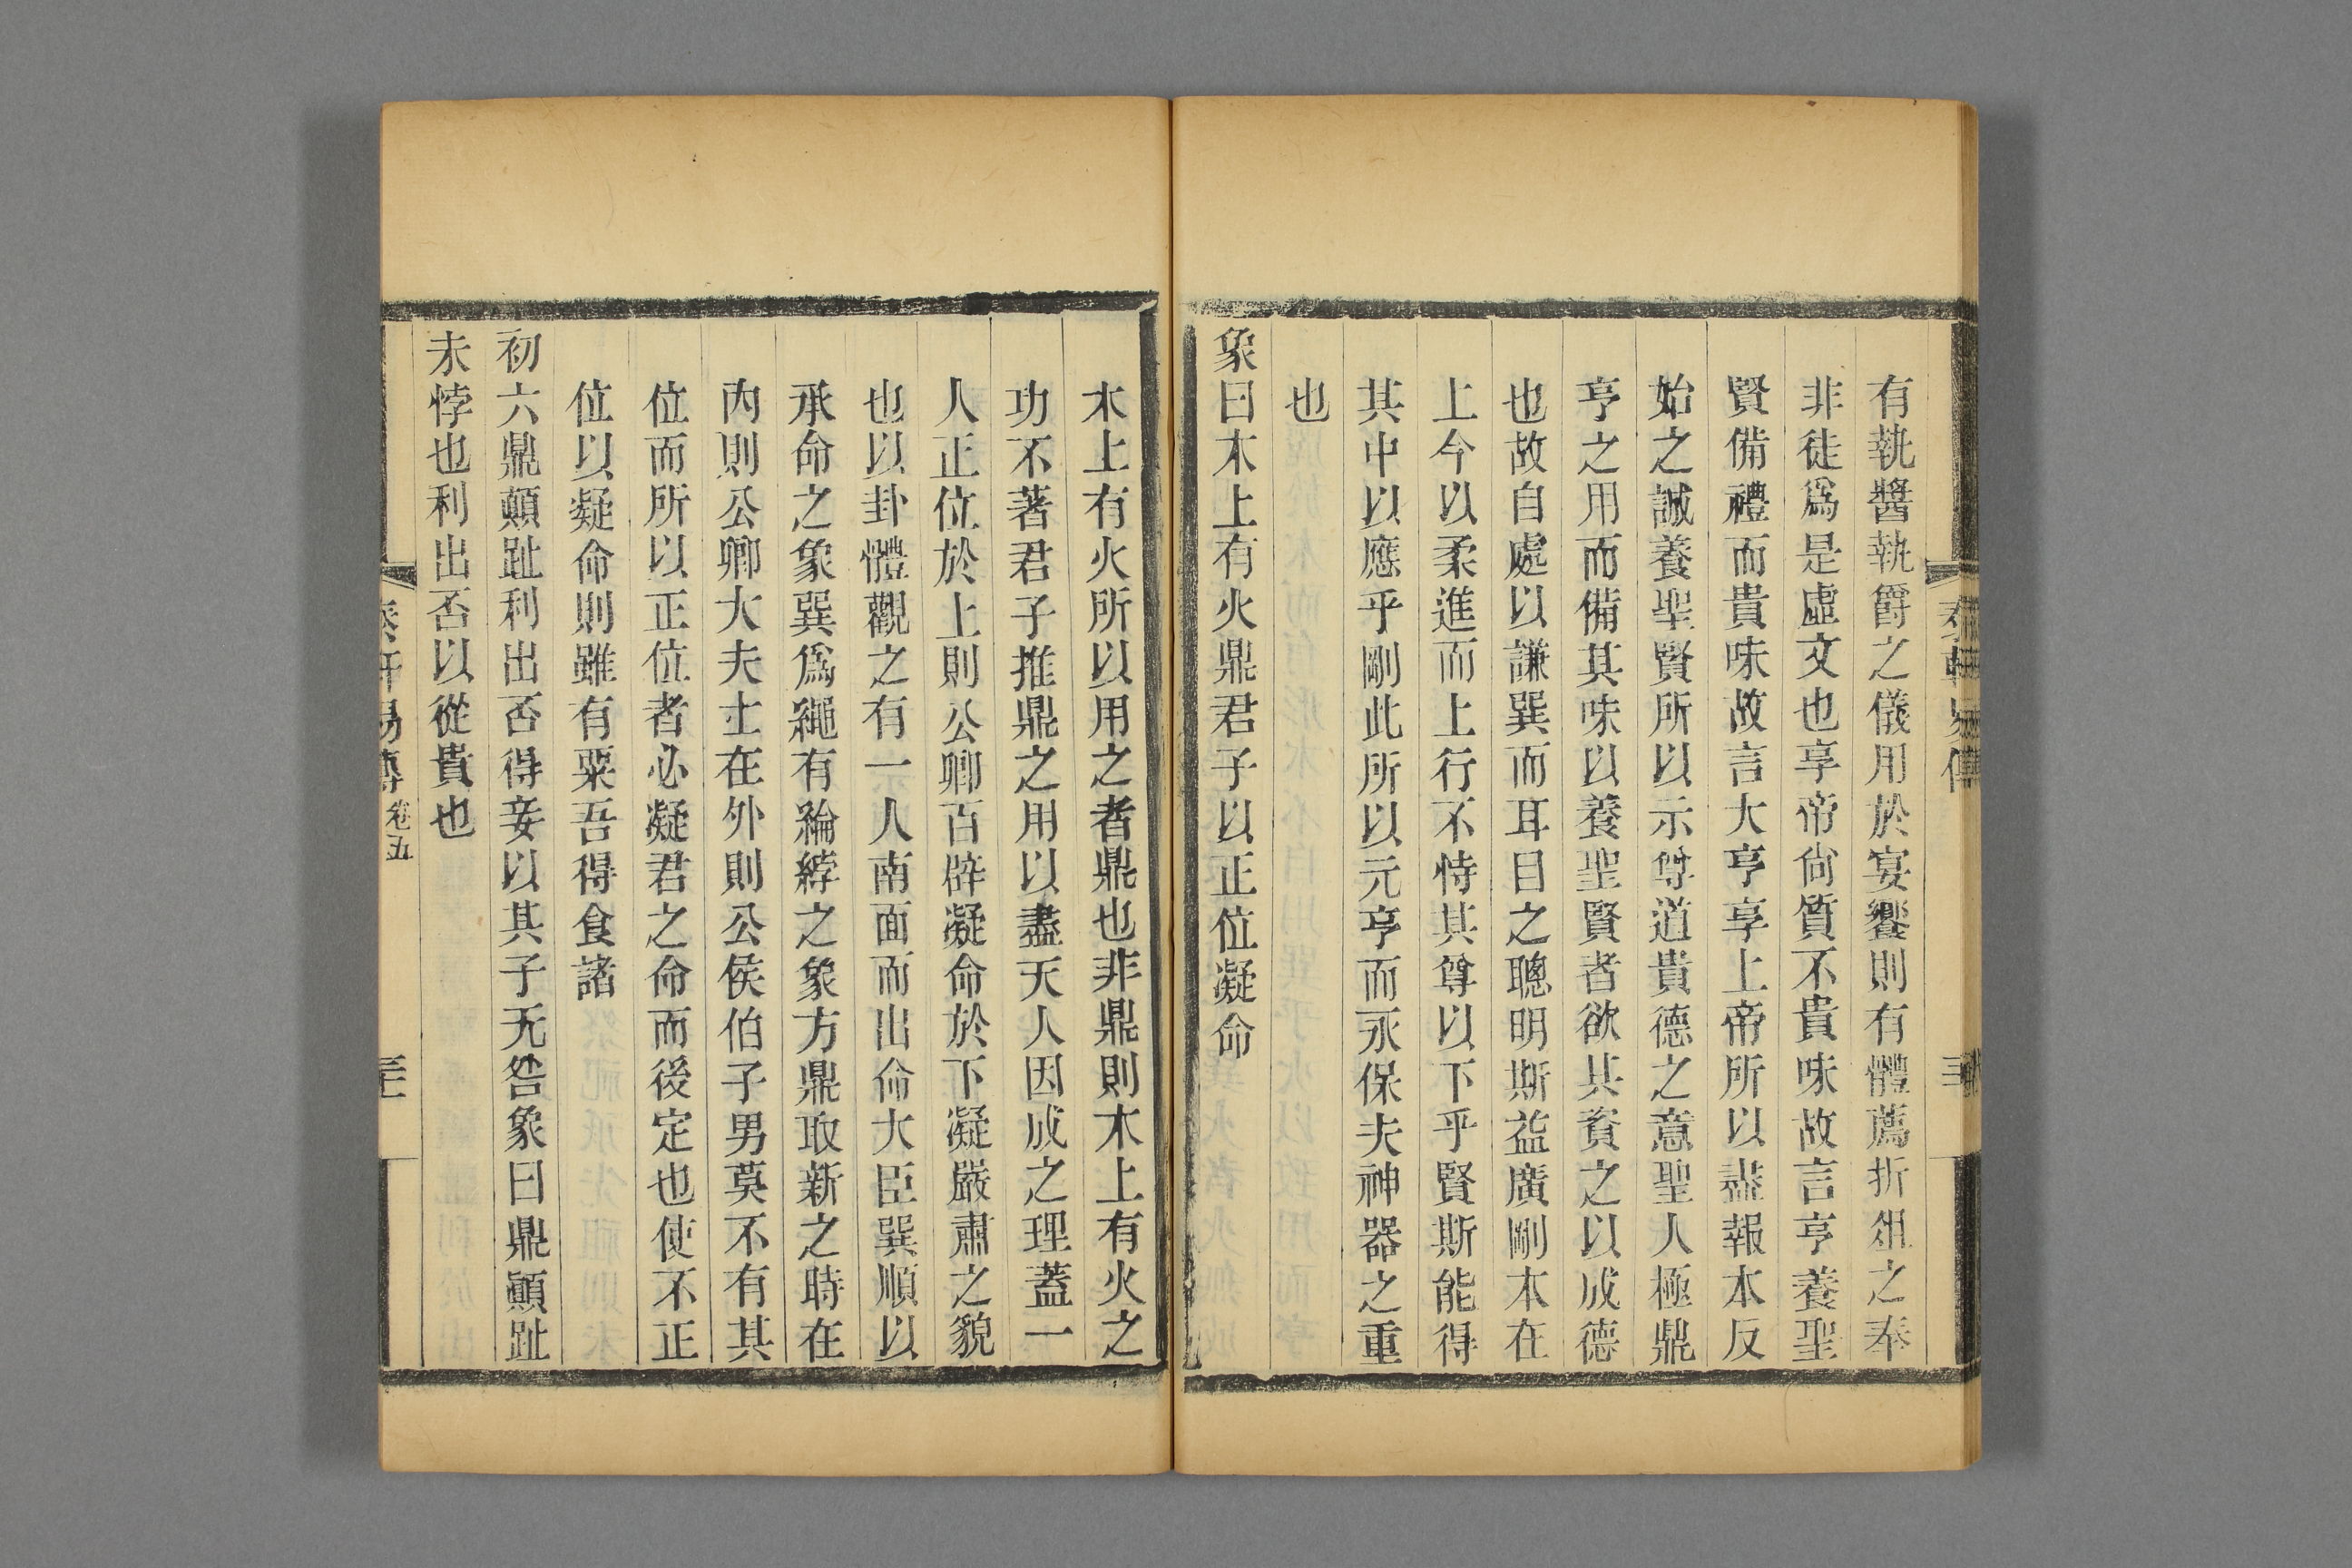 有執醬執爵之儀用於宴饗則有體薦折俎之奉
非徒爲是虛文也享帝尙質不貴味故言亨養聖
賢備禮而貴味故言大亨享上帝所以盡報本反
始之誠養聖賢所以示尊道貴德之意聖人極鼎
亨之用而備其味以養聖賢者欲其資之以成德
也故自處以謙巽而耳目之聰明斯益廣剛本在
上今以柔進而上行不恃其尊以下乎賢斯能得
其中以應乎剛此所以元亨而永保夫神器之重
也
象曰木上有火鼎君子以正位凝命
木上有火所以用之者鼎也非鼎則木上有火之
功不著君子推鼎之用以盡天人因成之理蓋一
人正位於上則公卿百辟凝命於下凝嚴肅之貌
也以卦體觀之有一人南面而出命大臣巽順以
承命之象巽爲繩有綸綍之象方鼎取新之時在
內則公卿大夫士在外則公侯伯子男莫不有其
位而所以正位者必凝君之命而後定也使不正
位以凝命則雖有粟吾得食諸
初六鼎顚趾利出否得妾以其子无咎象曰鼎顚趾
未悖也利出否以從貴也
易傳 卷五